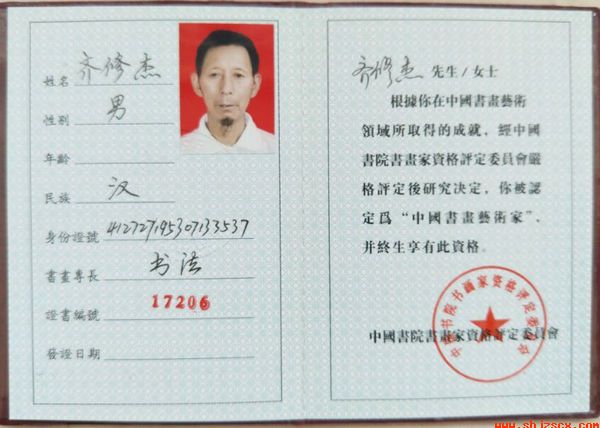 姓名 齐修杰
性別 男
年齡
民族 汉
身份證號 412727195307133537
書畫專長 书法
證書編號 17206
發證日期
齐修杰 先生/女士
根據你在中國書畫藝術
領域所取得的成就，經中國
書院書畫家資格評定委員會嚴
格評定後研究決定，你被認
定爲“中國書畫藝術家”，
并終生享有此資格。
中國書院書畫家資格評定委員會
www.shjzscx.com